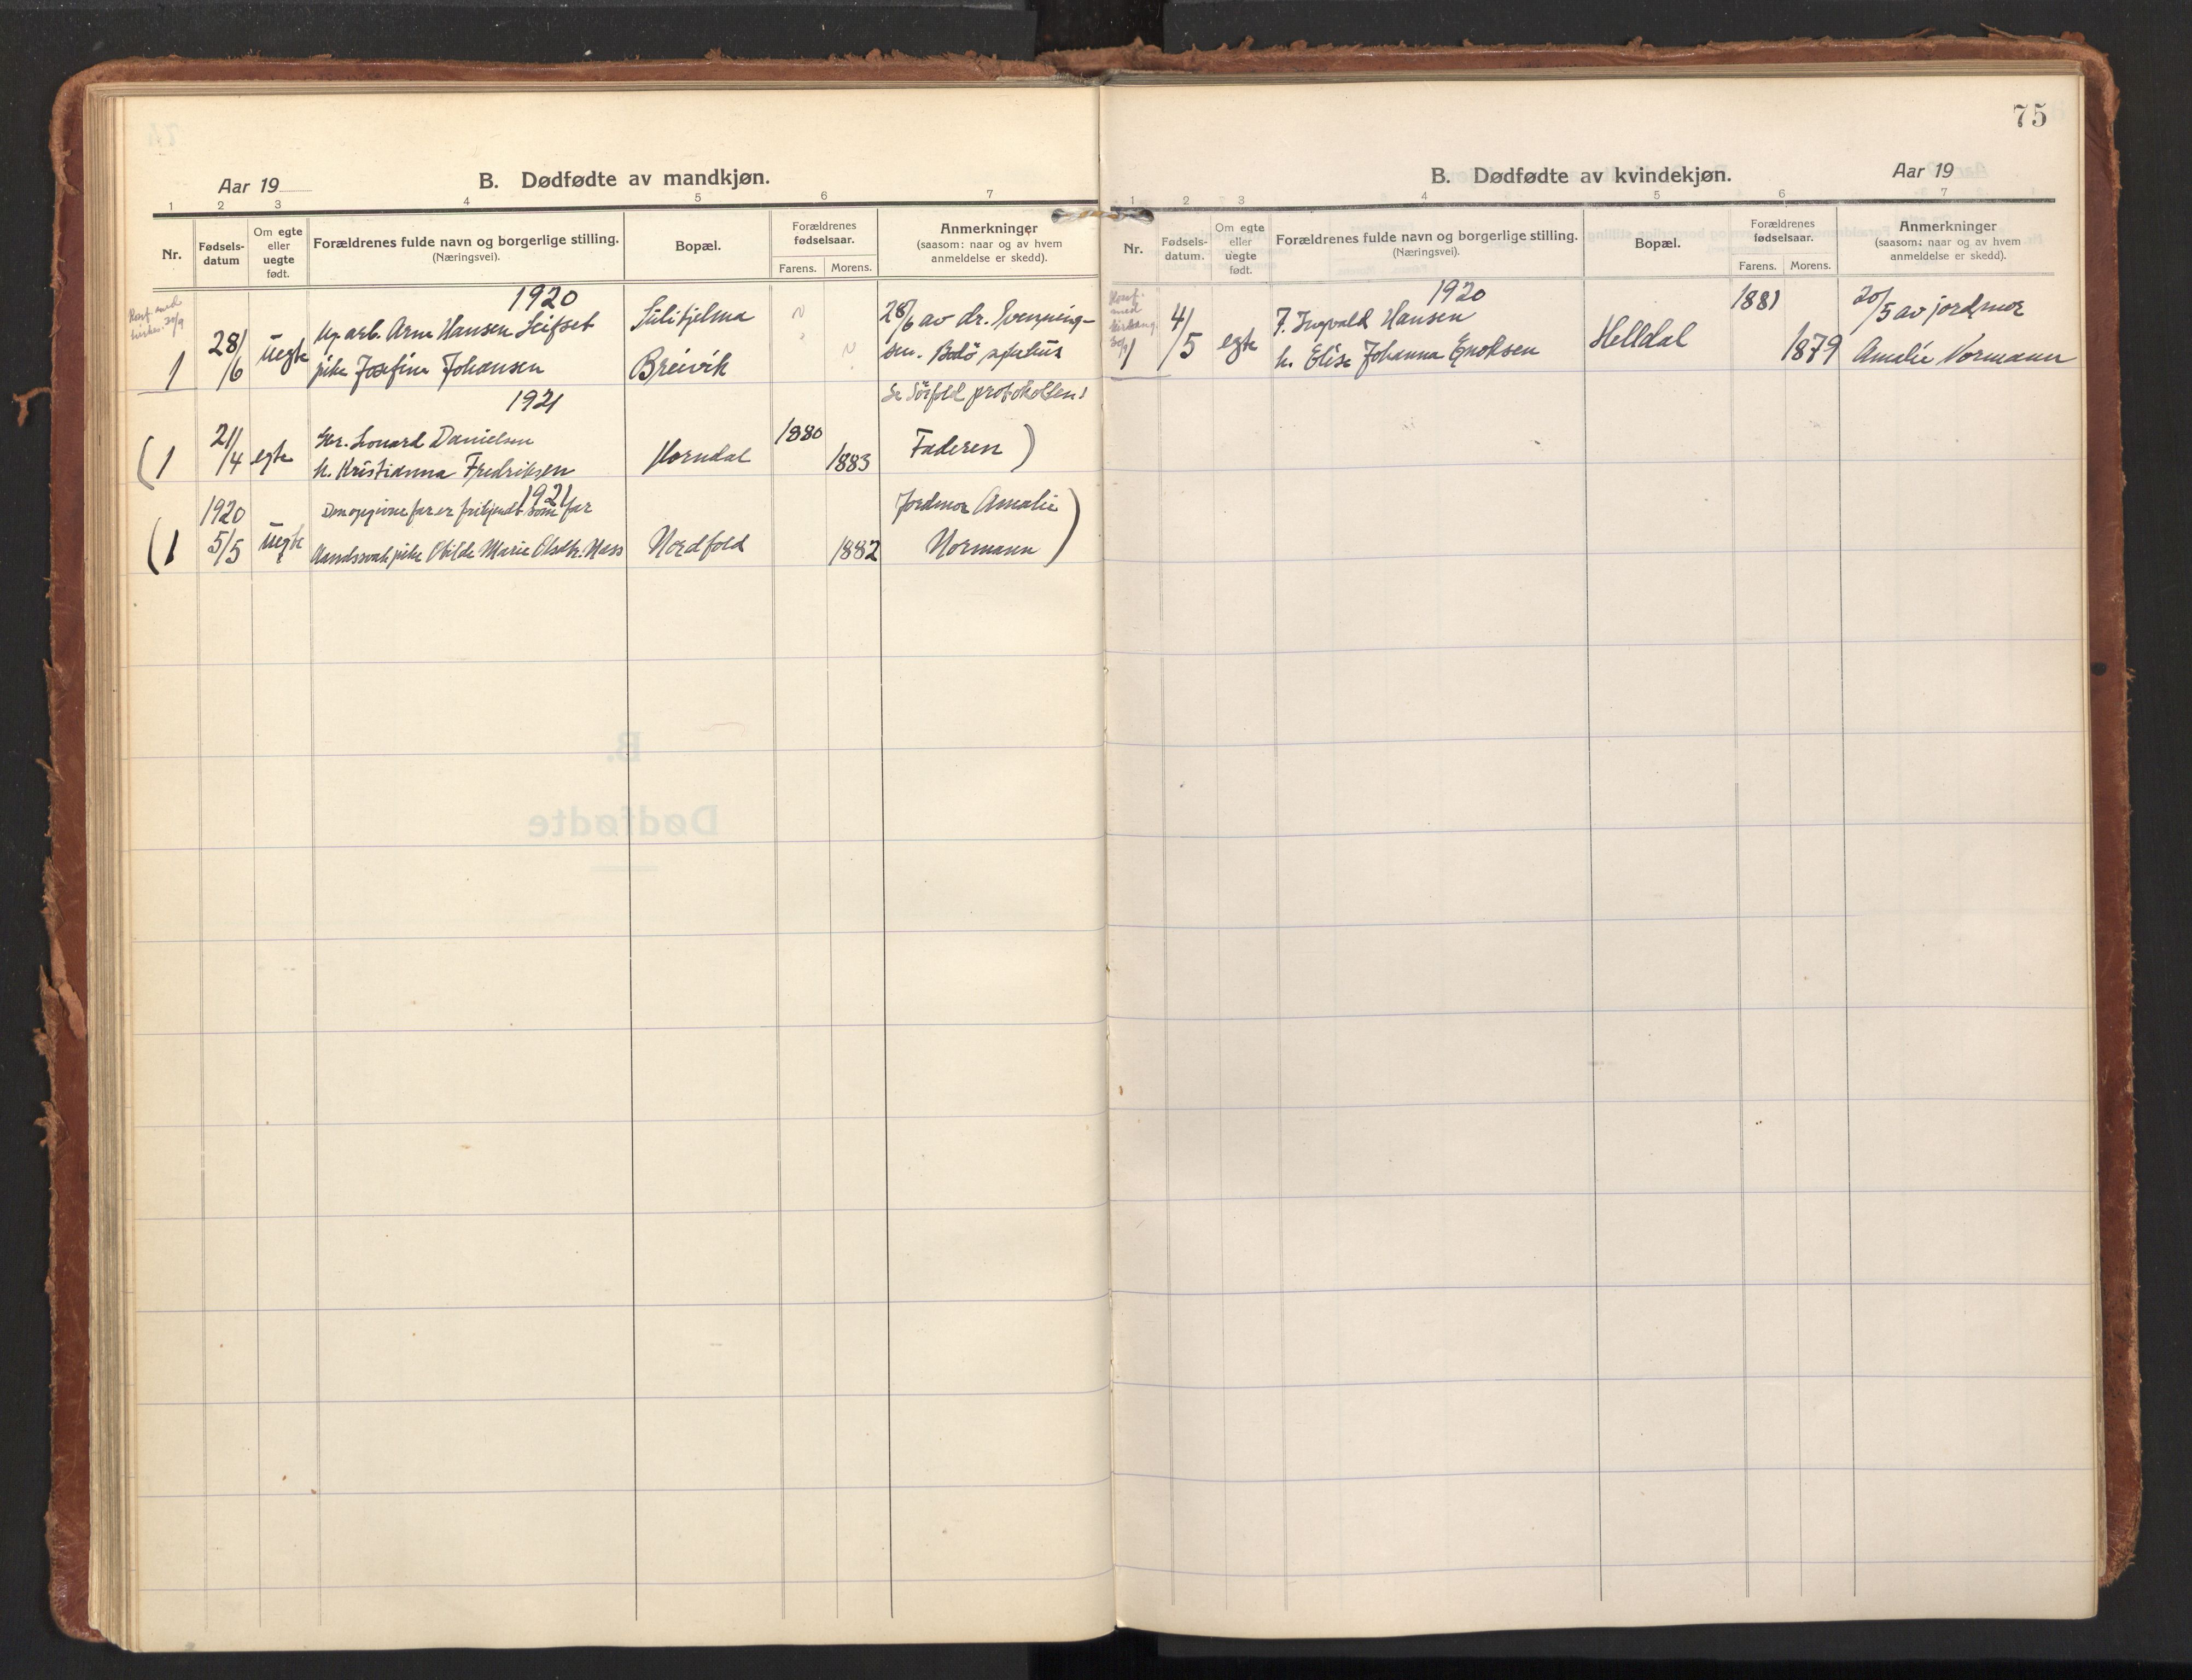 Aar 19
B. Dødfødte av mandkjøn.
1 2 3 4 5 6 7
Nr.
Fødsels-
datum
Om egte
eller
uegte
født.
Forældrenes fulde navn og borgerlige stilling.
(Næringsvei).
Bopæl.
Forældrenes
fødselsaar.
Farens. Morens.
Anmerkninger
(saasom: naar og av hvem
anmeldelse er skedd).
1920
1 28/6 uegte
arb. Arne Hansen Leifset
pike Josefine Johansen
Sulitjelma
Breivik
28/6 av dr. Svenning-
sen. Bodø sykehus
1921
Se Sørfold protokollen!
(1 21/4 egte
Gbr. Leonard Danielsen
h. Kristianna Fredriksen
Horndal
1880
1883
Faderen )
1921
(1 1920 5/5 uegte
Den opgivne far er frikjendt som far
pike Obilde Marie Olsdtr. Næss
Nordfold
1882
Jordmor Amalie
Normann )
75
B. Dødfødte av kvindekjøn.
Aar 19
1 2 3 4 5 6 7
Nr.
Fødsels-
datum.
Om egte
eller
uegte
født.
Forældrenes fulde navn og borgerlige stilling.
(Næringsvei).
Bopæl.
Forældrenes
fødselsaar.
Farens. Morens.
Anmerkninger
(saasom: naar og av hvem
anmeldelse er skedd).
1920
1 4/5 egte
F. Ingvald Hansen
h. Elise Johanna Enoksen
Helldal
1881
1879
20/5 av jordmor
Amalie Normann